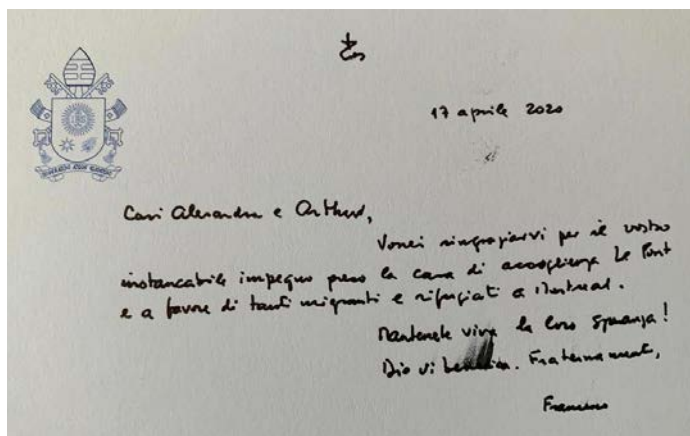 17 aprile 2020
Cari Alexandra e Arthur,
Vorrei ringraziarvi per il vostro
instancabile impegno presso la casa di accoglienza Le Pont
e a favore di tanti migranti e rifugiati a Montreal.
Mantenete viva la loro speranza!
Dio vi benedica. Fraternamente,
Francesco